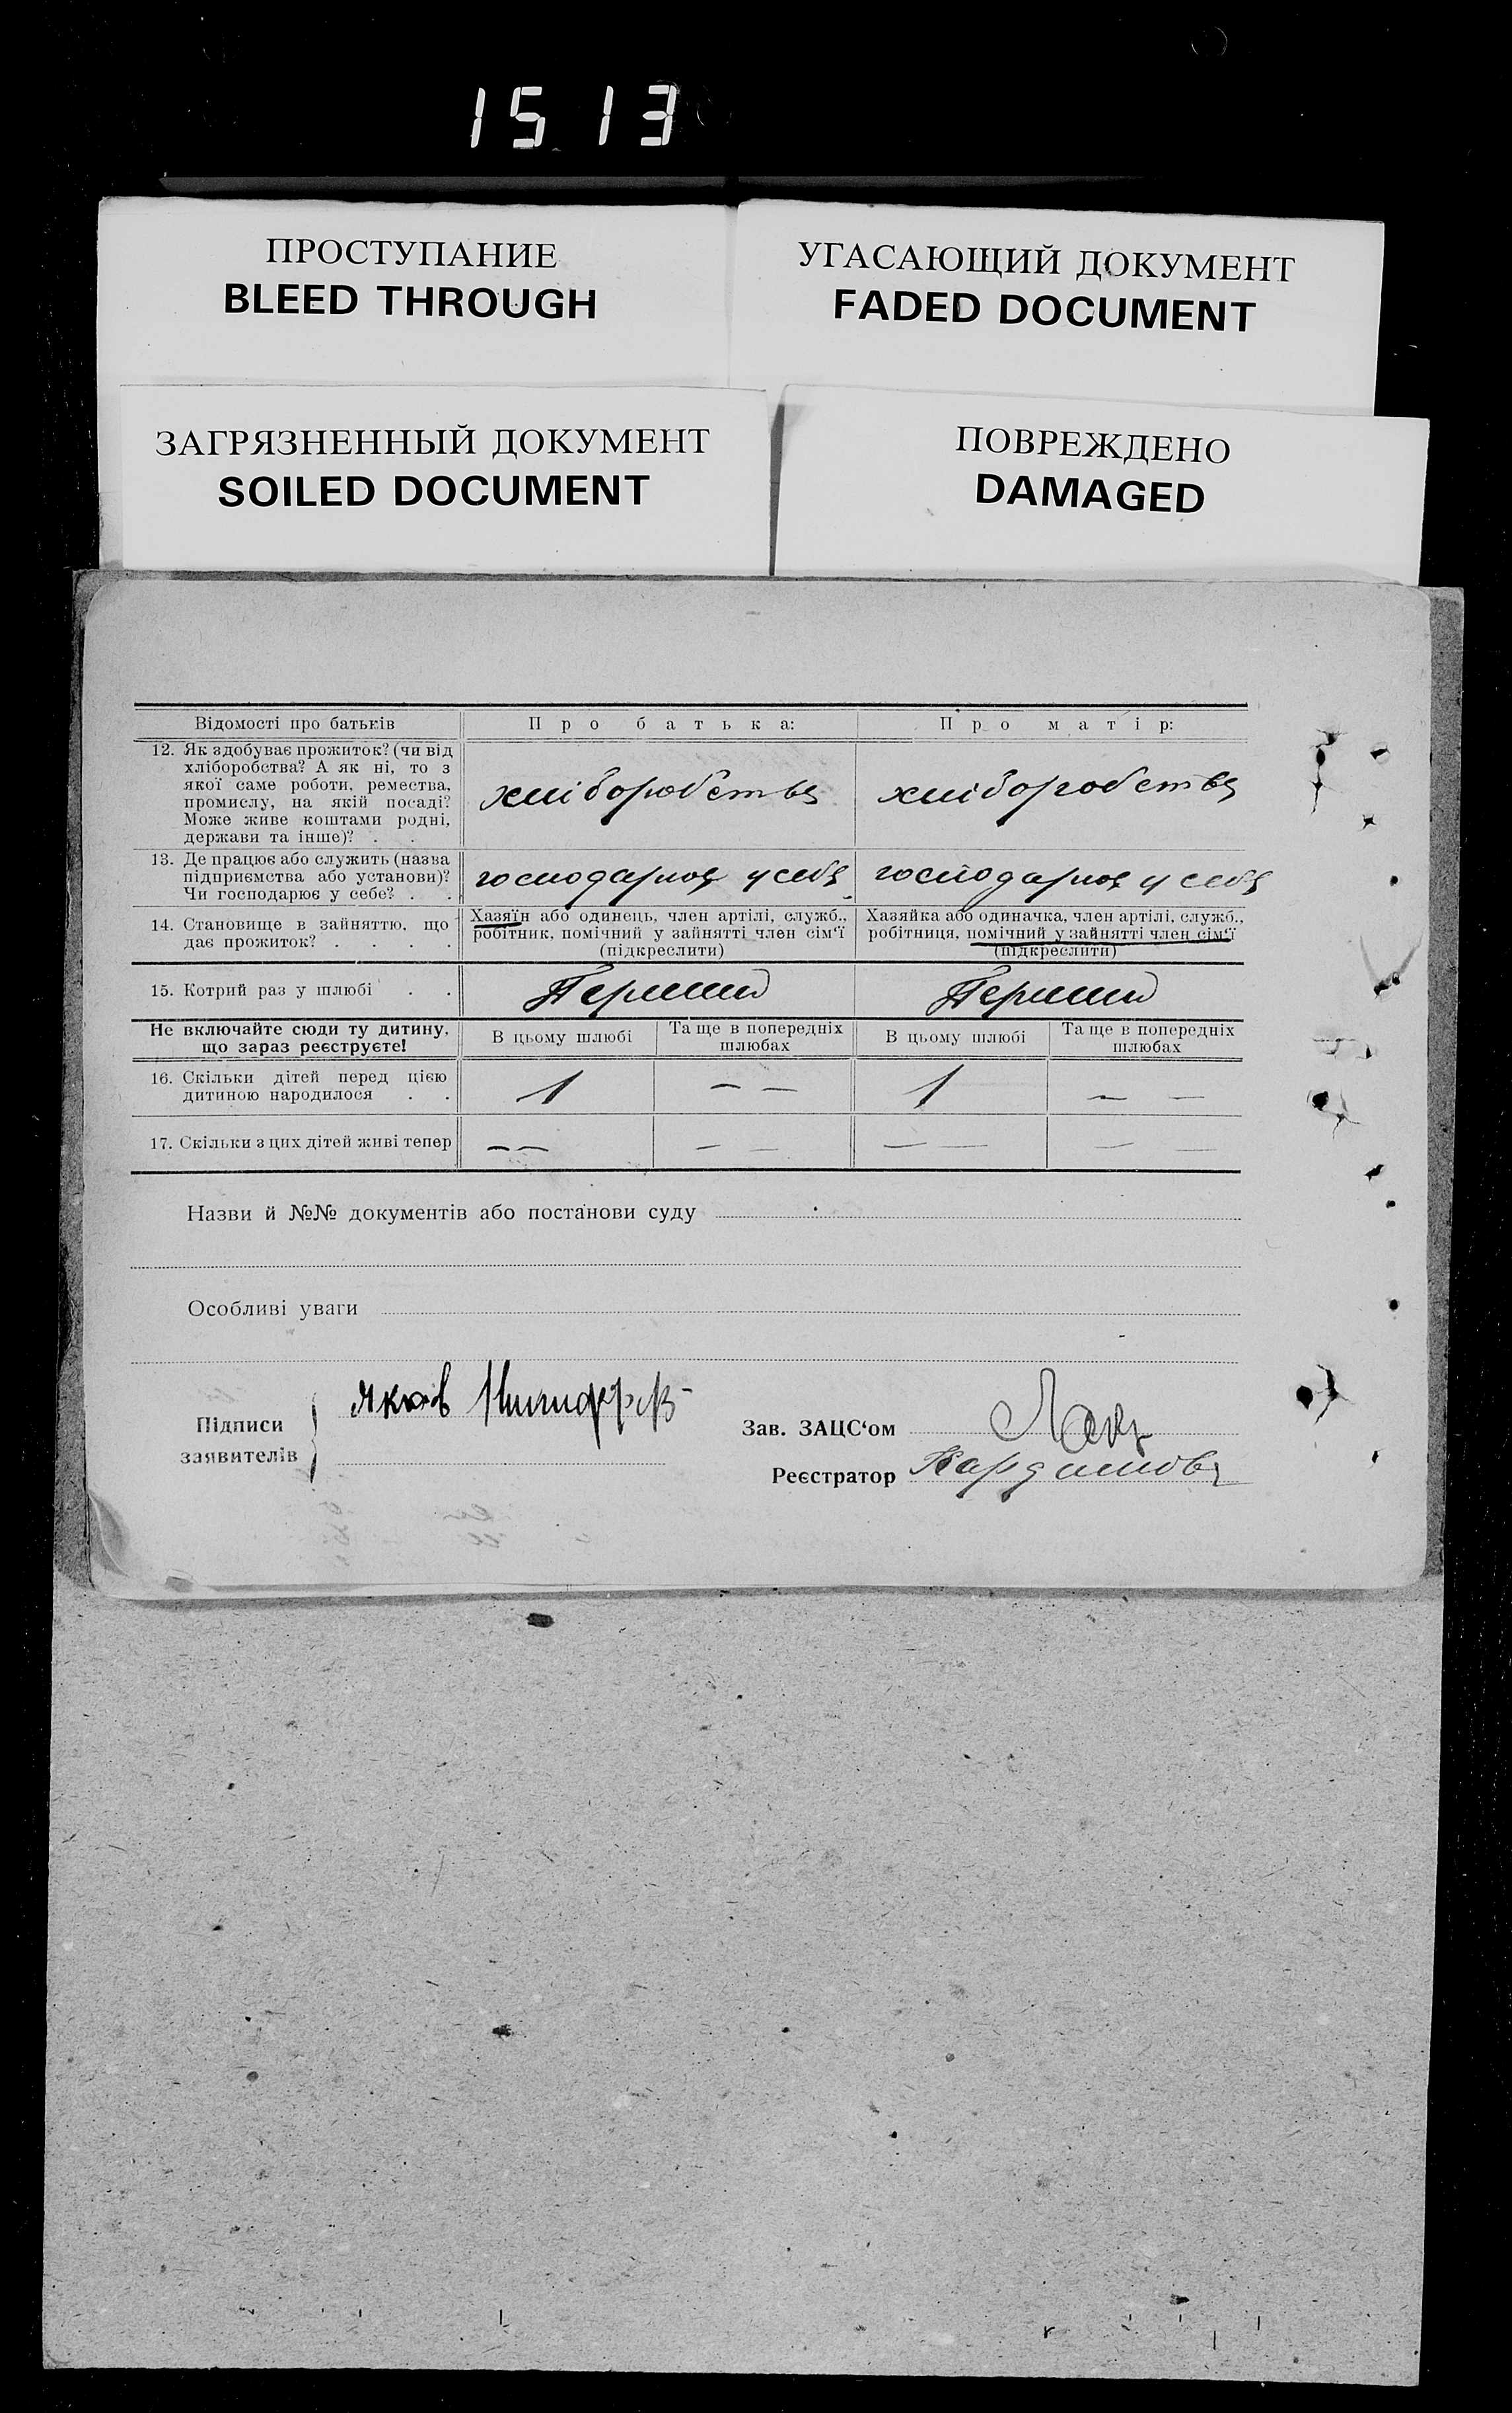 1513
ПРОСТУПАНИЕ
BLEED THROUGH
УГАСАЮЩИЙ ДОКУМЕНТ
FADED DOCUMENT
ЗАГРЯЗНЕННЫЙ ДОКУМЕНТ
SOILED DOCUMENT
ПОВРЕЖДЕНО
DAMAGED
Відомості про батьків
Про батька:
Про матір:
12. Як здобуває прожиток? (чи від
хліборобства? А як ні, то з
якої саме роботи, ремества,
промислу, на якій посаді?
Може живе коштами родні,
держави та інше)? . .
хліборобства
хліборобства
13. Де працює або служить (назва
підприємства або установи)?
Чи господарює у себе? . .
господарює у себе
господарює у себе
14. Становище в зайняттю, що
дає прожиток? . . . .
Хазяїн або одинець, член артілі, служб.,
робітник, помічний у зайнятті член сім‘ї
(підкреслити)
Хазяйка або одиначка, член артілі, служб.,
робітниця, помічний у зайнятті член сім‘ї
(підкреслити)
15. Котрий раз у шлюбі . .
Перший
Перший
Не включайте сюди ту дитину,
що зараз реєструєте!
В цьому шлюбі
Та ще в попередніх
шлюбах
В цьому шлюбі
Та ще в попередніх
шлюбах
16. Скільки дітей перед цією
дитиною народилося . .
1
— —
1
— —
17. Скільки з цих дітей живі тепер
— —
— —
— —
— —
Назви й №№ документів або постанови суду
Особливі уваги
Підписи
заявителів
Яков
Зав. ЗАЦС‘ом
Реєстратор